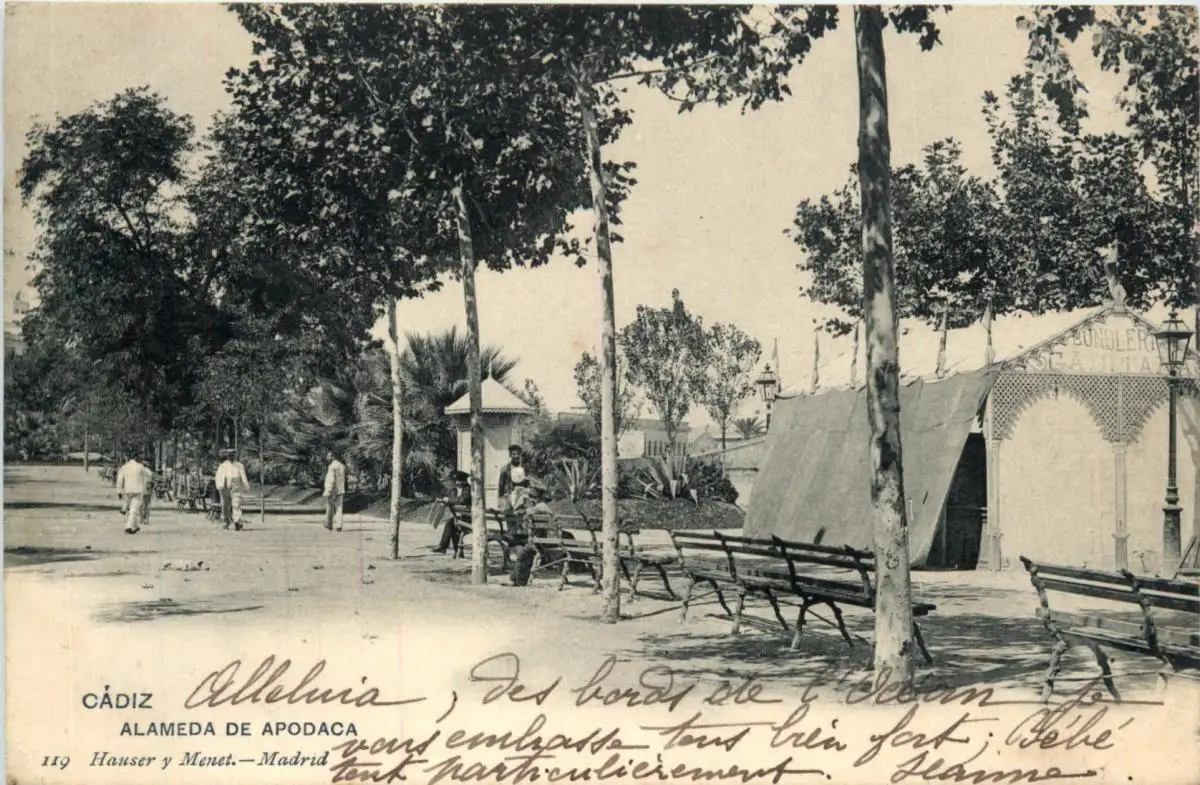 BUÑOLERÍA
CÁDIZ
ALAMEDA DE APODACA
119 Hauser y Menet.—Madrid
Alleluia, des bords de l'Océan je
vous embrasse tous bien fort; Bébé
tout particulièrement. Jeanne.